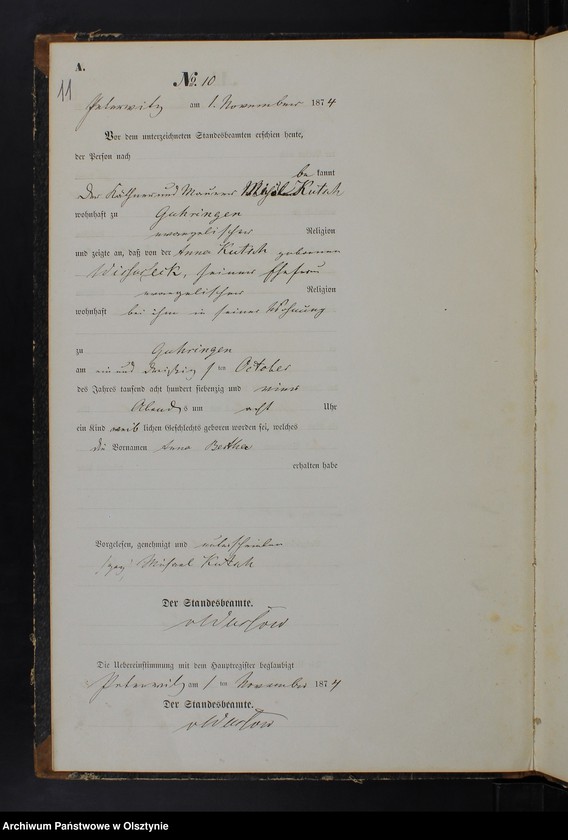 A.
11
No. 10
Peterwitz am 1. November 1874
Vor dem unterzeichneten Standesbeamten erschien heute,
der Person nach
be kannt
Der Käthner und Maurer Kutsch
wohnhaft zu Guhringen
evangelischer Religion
und zeigte an, daß von der Anna Kutsch geborenen
seiner Ehefrau
evangelischer Religion
wohnhaft bei ihm in seiner Wohnung
zu Guhringen
am ein und dreißigsten October
des Jahres tausend acht hundert siebenzig und
Abends um acht Uhr
ein Kind weib lichen Geschlechts geboren worden sei, welches
die Vornamen Anna Bertha
erhalten habe
Vorgelesen, genehmigt und unterschrieben
gez. Michael Kutsch
Der Standesbeamte.
Die Uebereinstimmung mit dem Hauptregister beglaubigt
Peterwitz am 1 ten November 1874
Der Standesbeamte.
Archiwum Państwowe w Olsztynie